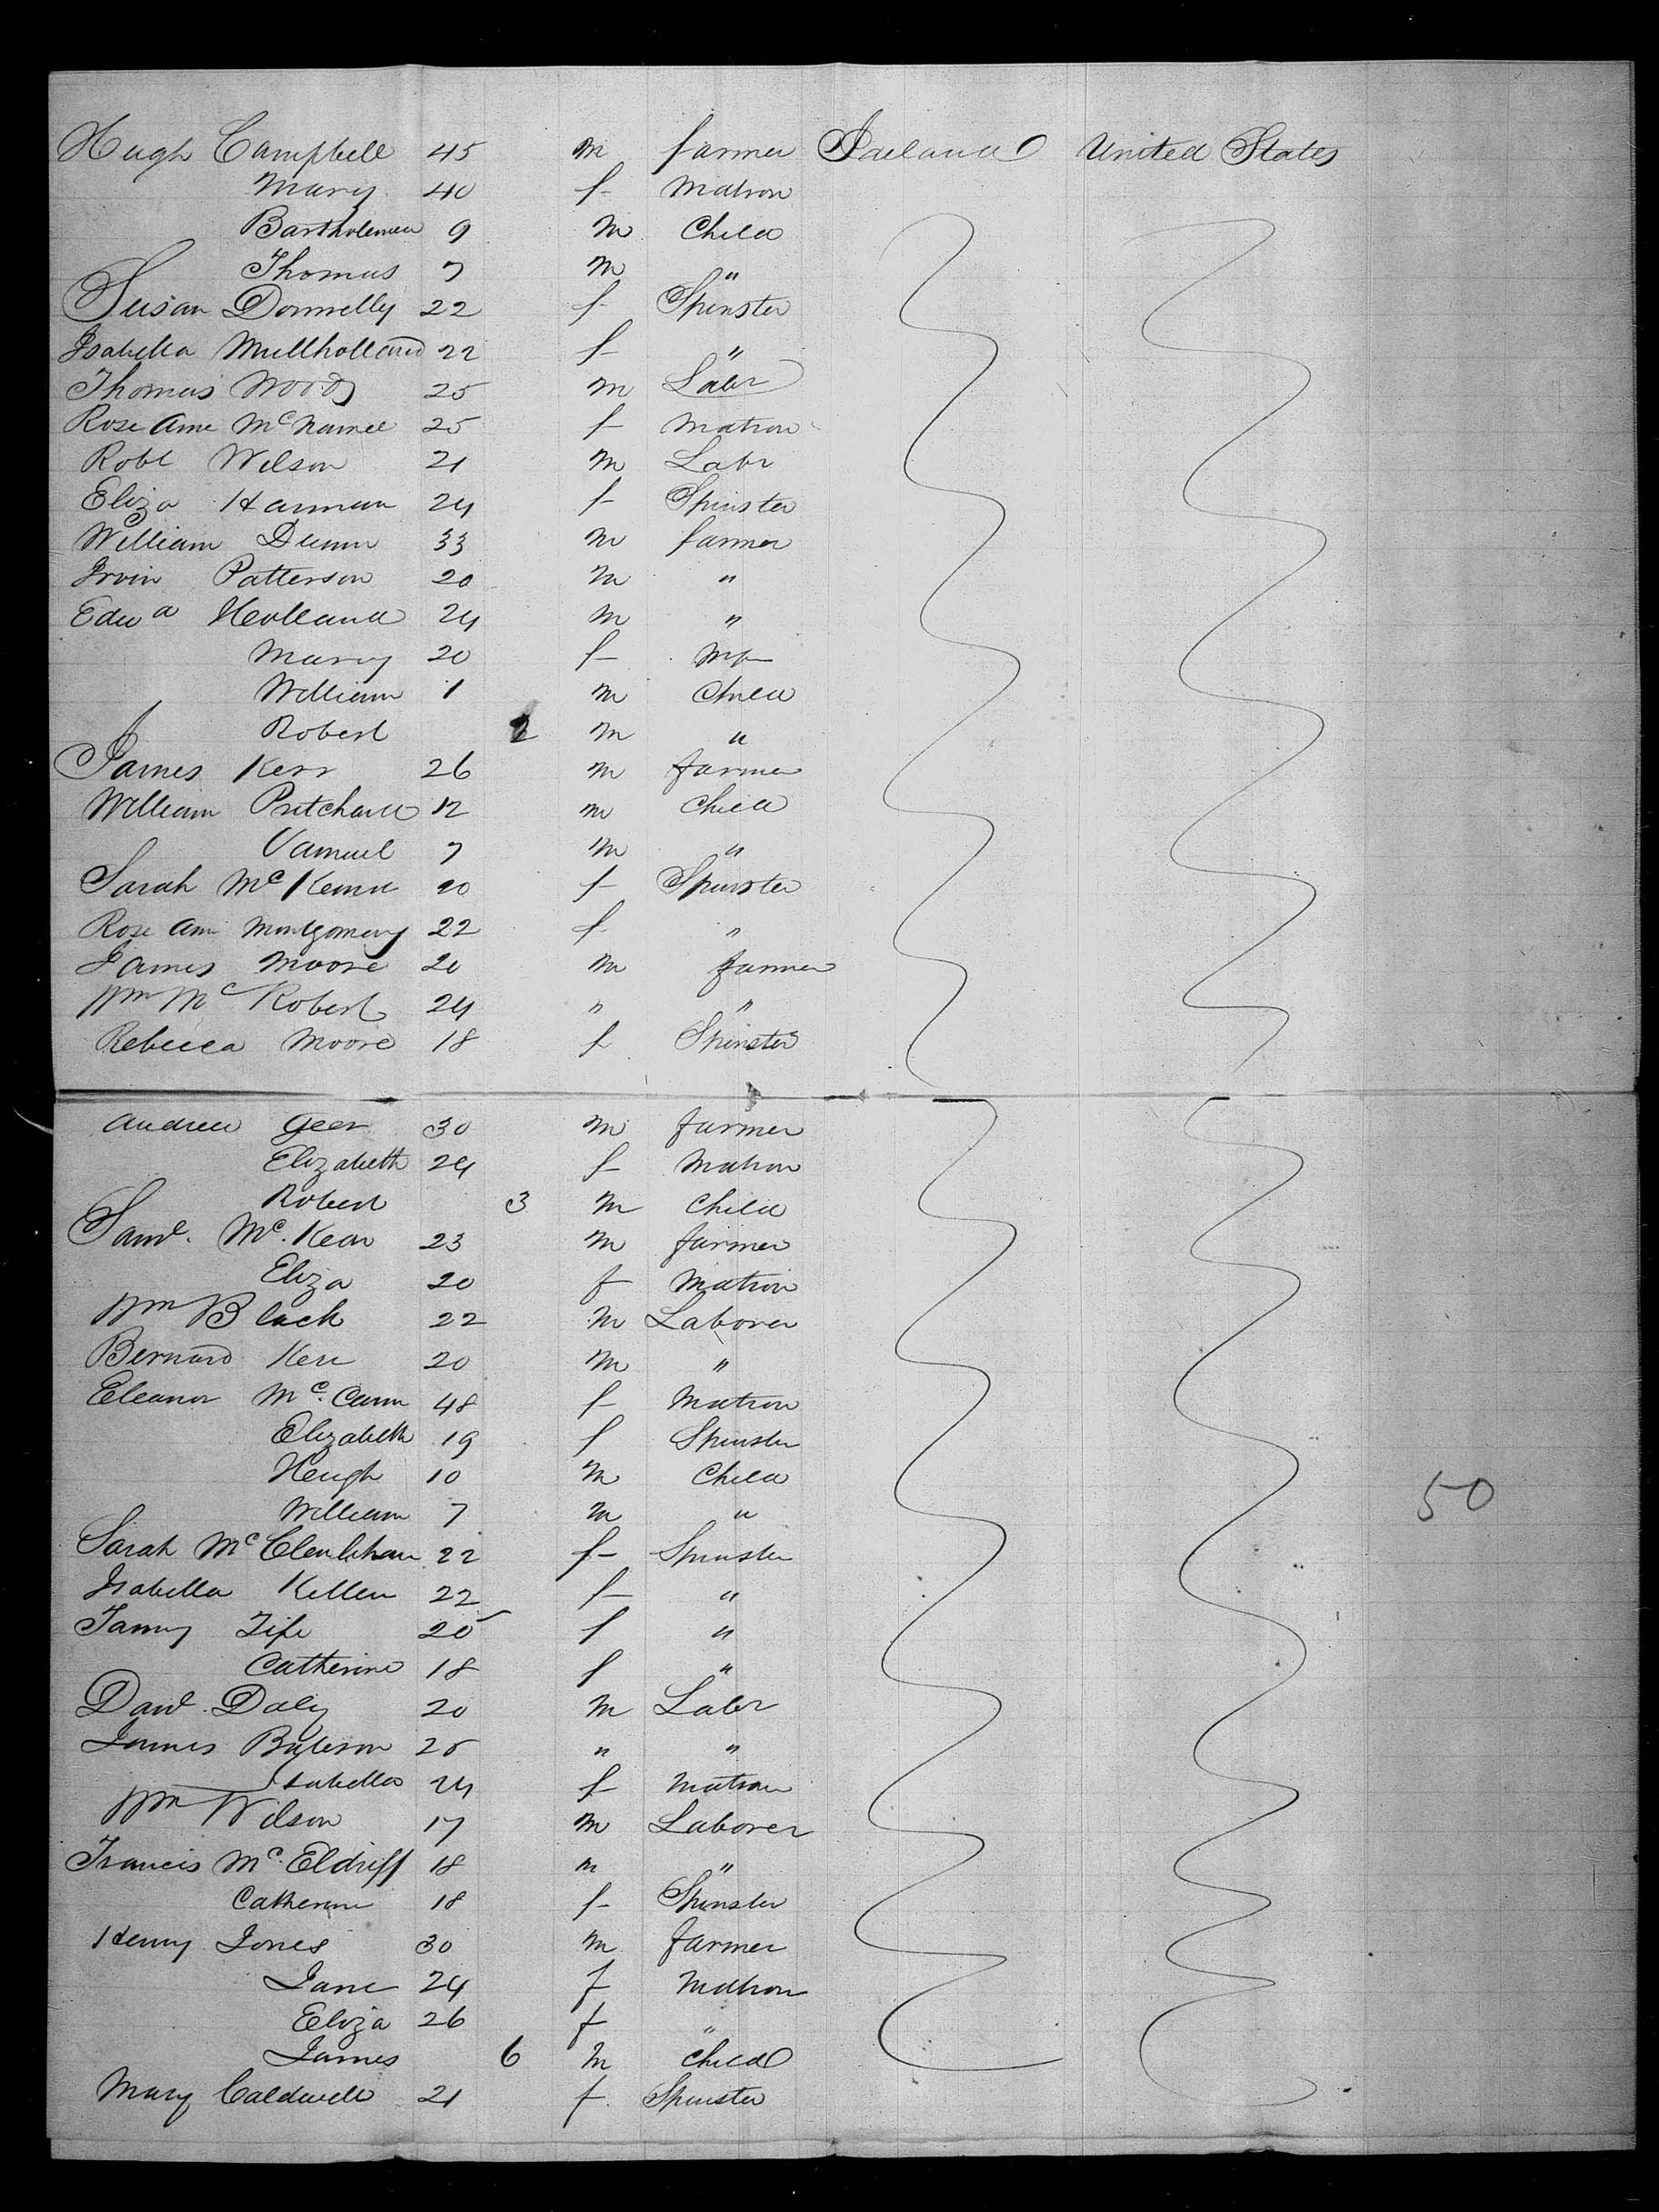 Hugh Campbell 45 m farmer Ireland United States
Mary 40 f Matron
Bartholemew 9 m Child
Thomas 7 m "
Susan Donnelly 22 f Spinster
Isabella Mullholland 22 f "
Thomas Woods 25 m Labr
Rose Ann Mc Namee 25 f Matron
Robt Wilson 21 m Labr
Eliza Hannan 24 f Spinster
William Dunn 33 m farmer
Irvin Patterson 20 m "
Edwd Holland 24 m "
Mary 20 f
William 1 m Child
Robert 2 m "
James Kerr 26 m farmer
William Pritchard 12 m Child
Samuel 7 m "
Sarah Mc Kenna 20 f Spinster
Rose Ann Montgomery 22 f "
James Moore 20 m farmer
Wm Mc Robert 24 " "
Rebecca Moore 18 f Spinster
Andrew Geer 30 m farmer
Elizabeth 24 f Matron
Robert 3 m Child
Saml. Mc. Kear 23 m farmer
Eliza 20 f Matron
Wm Black 22 m Laborer
Bernard Kerr 20 m "
Eleanor Mc. Cann 48 f Matron
Elizabeth 19 f Spinster
Hugh 10 m Child
William 7 m "
50
Sarah 22 f Spinster
Isabella Killen 22 f "
Fanny Fife 20 f "
Catherine 18 f "
Danl. Daly 20 m Labr
James Bateson 25 " "
Isabella 24 f Matron
Wm Wilson 17 m Laborer
Francis Mc. Eldriff 18 m "
Catherine 18 f Spinster
Henry Jones 30 m farmer
Jane 24 f Matron
Eliza 26 f "
James 6 m Child
Mary Caldwell 21 f Spinster